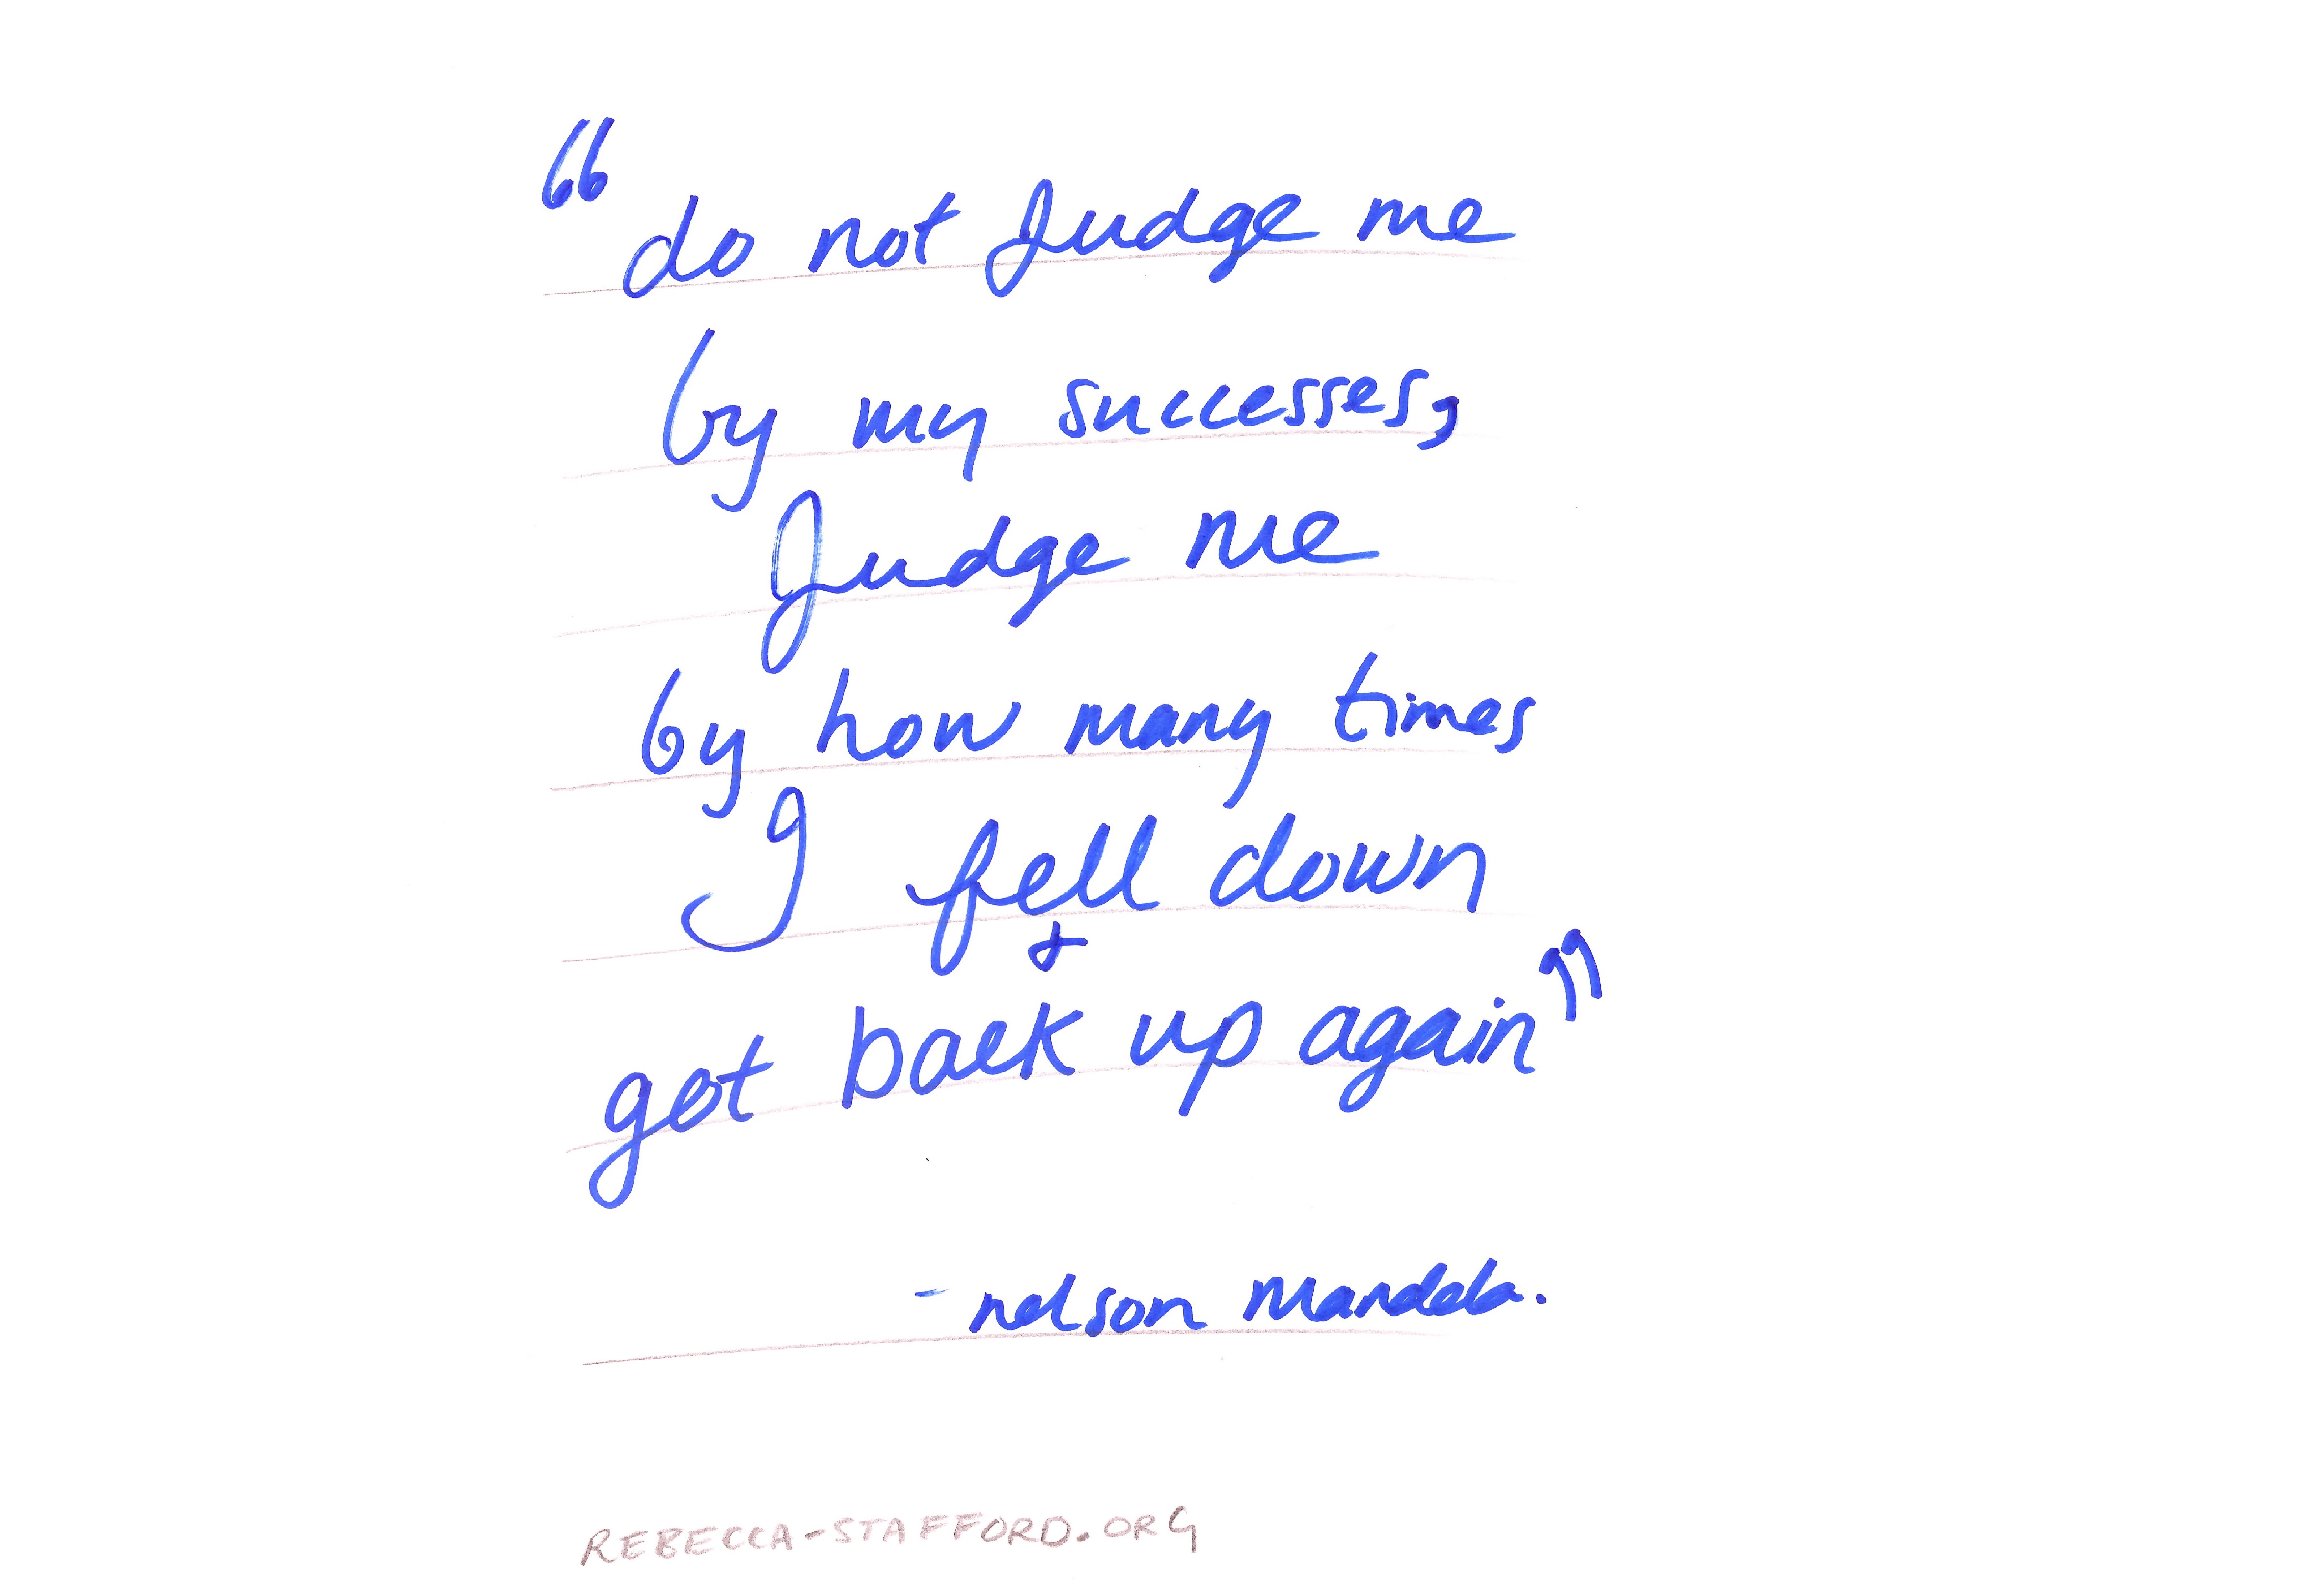 “do not Judge me
by my successes,
Judge me
by how many times
I fell down
+
get back up again”
- nelson Mandela.
REBECCA-STAFFORD.ORG